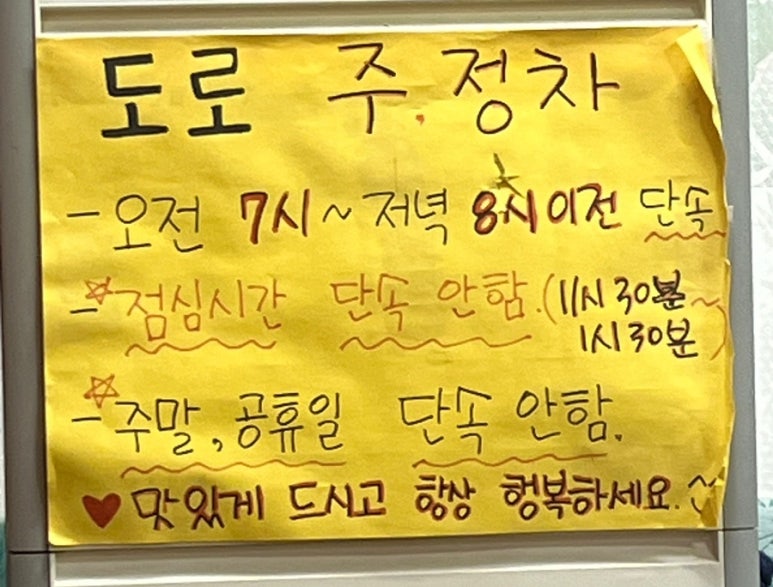 도로 주.정차
- 오전 7시 ~ 저녁 8시 이전 단속
- ☆점심시간 단속 안함.(11시 30분~
1시 30분)
- ☆주말, 공휴일 단속 안함.
♥ 맛있게 드시고 항상 행복하세요.^^